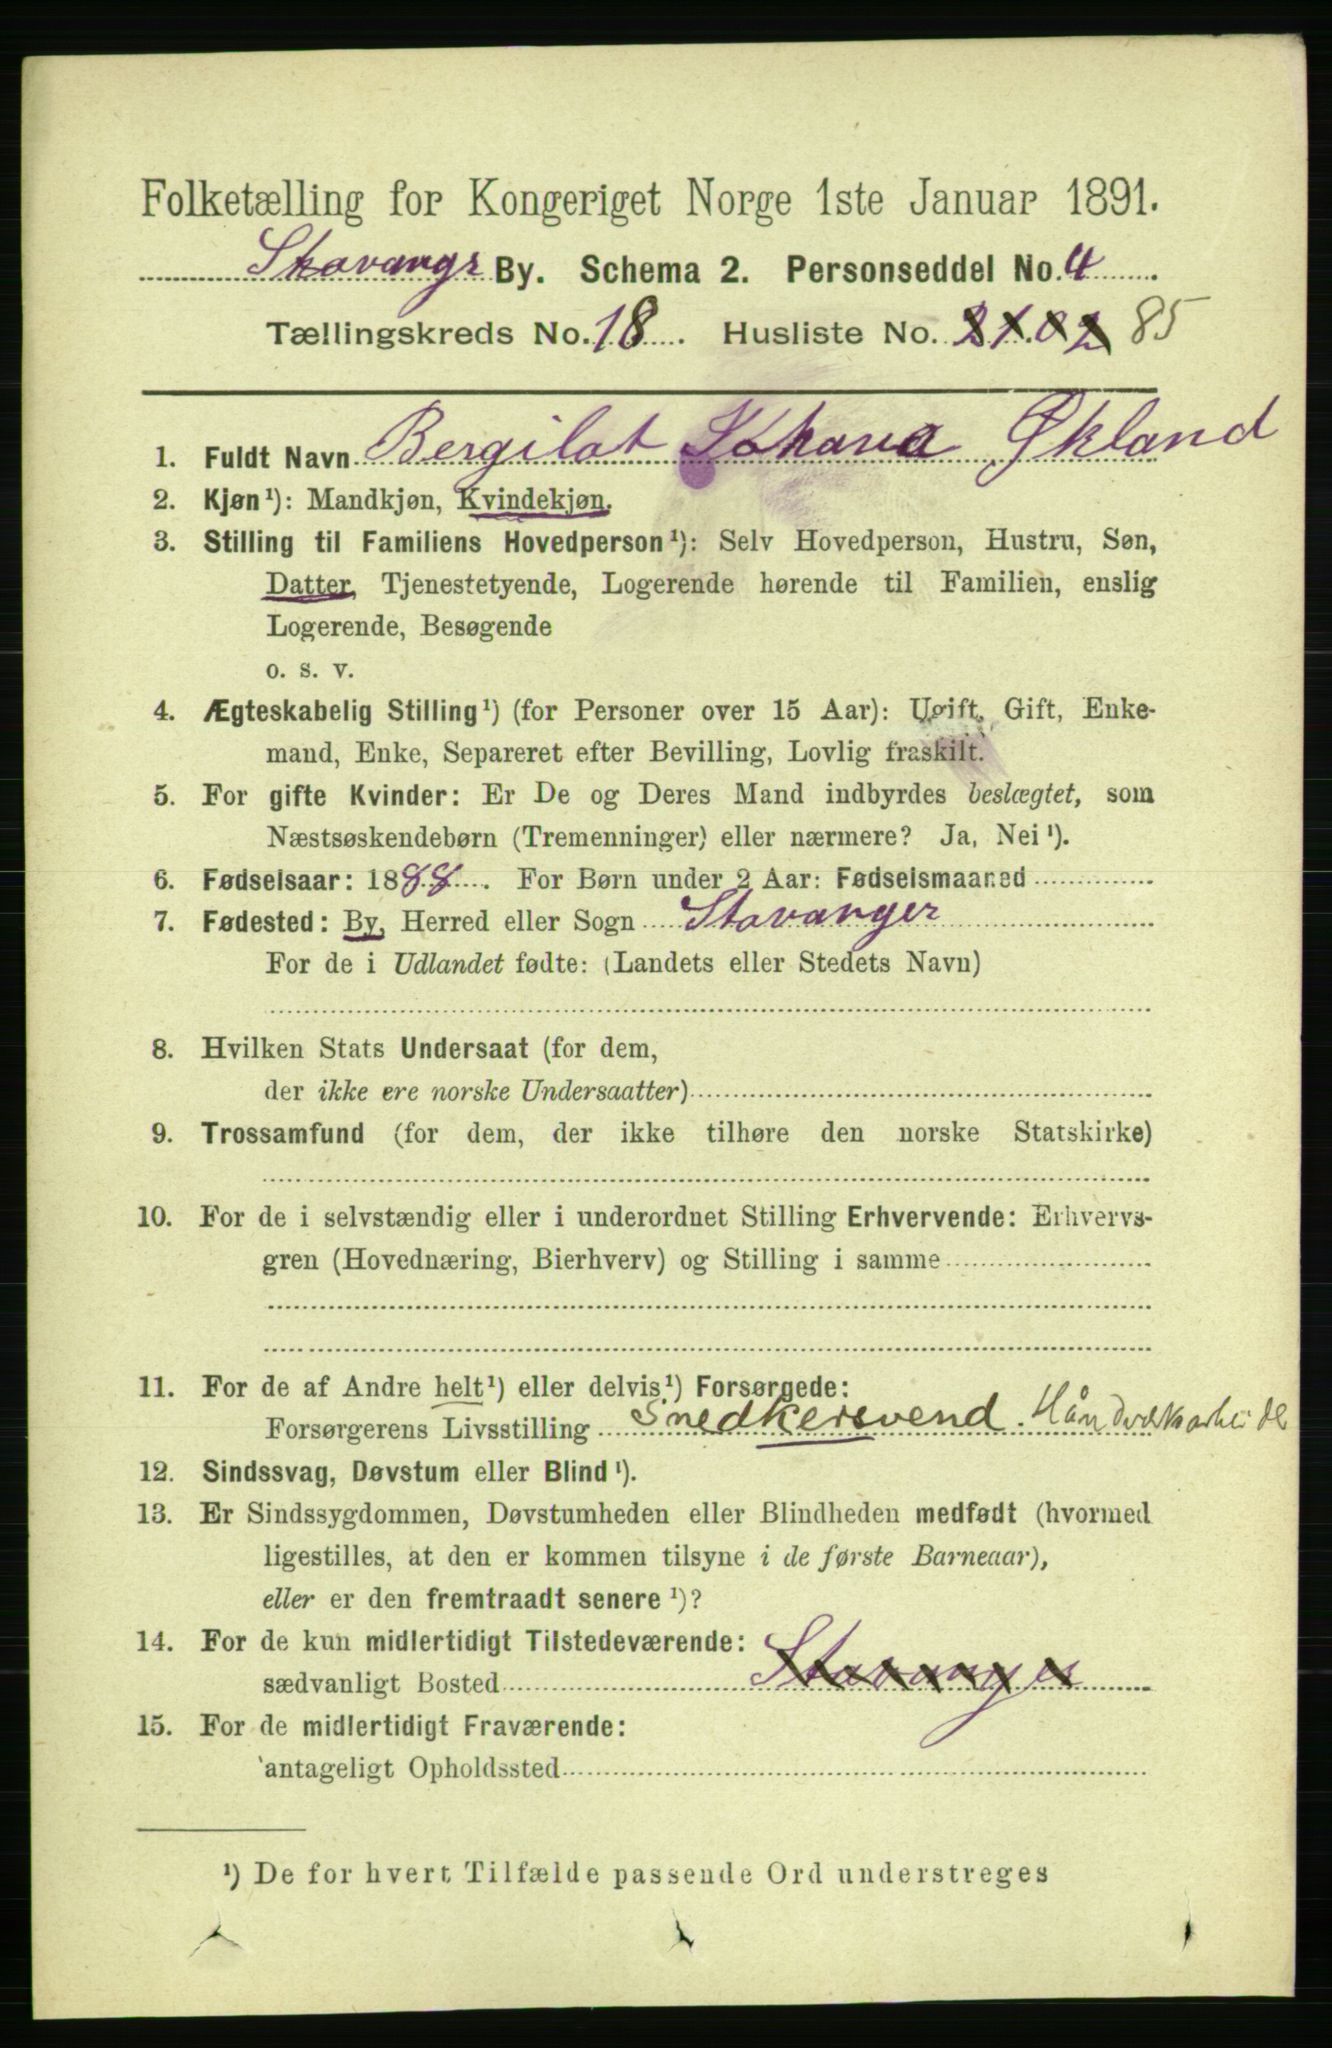 Folketælling for Kongeriget Norge 1ste Januar 1891.
Stavangr By. Schema 2. Personseddel No. 4
Tællingskreds No. 18. Husliste No. 85
1. Fuldt Navn Bergilot Johana Økland
2. Kjøn¹): Mandkjøn, Kvindekjøn.
3. Stilling til Familiens Hovedperson¹): Selv Hovedperson, Hustru, Søn,
Datter, Tjenestetyende, Logerende hørende til Familien, enslig
Logerende, Besøgende
o. s. v.
4. Ægteskabelig Stilling¹) (for Personer over 15 Aar): Ugift, Gift, Enke-
mand, Enke, Separeret efter Bevilling, Lovlig fraskilt.
5. For gifte Kvinder: Er De og Deres Mand indbyrdes beslægtet, som
Næstsøskendebørn (Tremenninger) eller nærmere? Ja, Nei¹).
6. Fødselsaar: 1888. For Børn under 2 Aar: Fødselsmaaned
7. Fødested: By, Herred eller Sogn Stavanger
For de i Udlandet fødte: (Landets eller Stedets Navn)
8. Hvilken Stats Undersaat (for dem,
der ikke ere norske Undersaatter)
9. Trossamfund (for dem, der ikke tilhøre den norske Statskirke)
10. For de i selvstændig eller i underordnet Stilling Erhvervende: Erhvervs-
gren (Hovednæring, Bierhverv) og Stilling i samme
11. For de af Andre helt¹) eller delvis¹) Forsørgede:
Forsørgerens Livsstilling Snedkersvend. Håndværksarbeide
12. Sindssvag, Døvstum eller Blind¹).
13. Er Sindssygdommen, Døvstumheden eller Blindheden medfødt (hvormed
ligestilles, at den er kommen tilsyne i de første Barneaar),
eller er den fremtraadt senere¹)?
14. For de kun midlertidigt Tilstedeværende:
sædvanligt Bosted Stavanger
15. For de midlertidigt Fraværende:
antageligt Opholdssted
¹) De for hvert Tilfælde passende Ord understreges